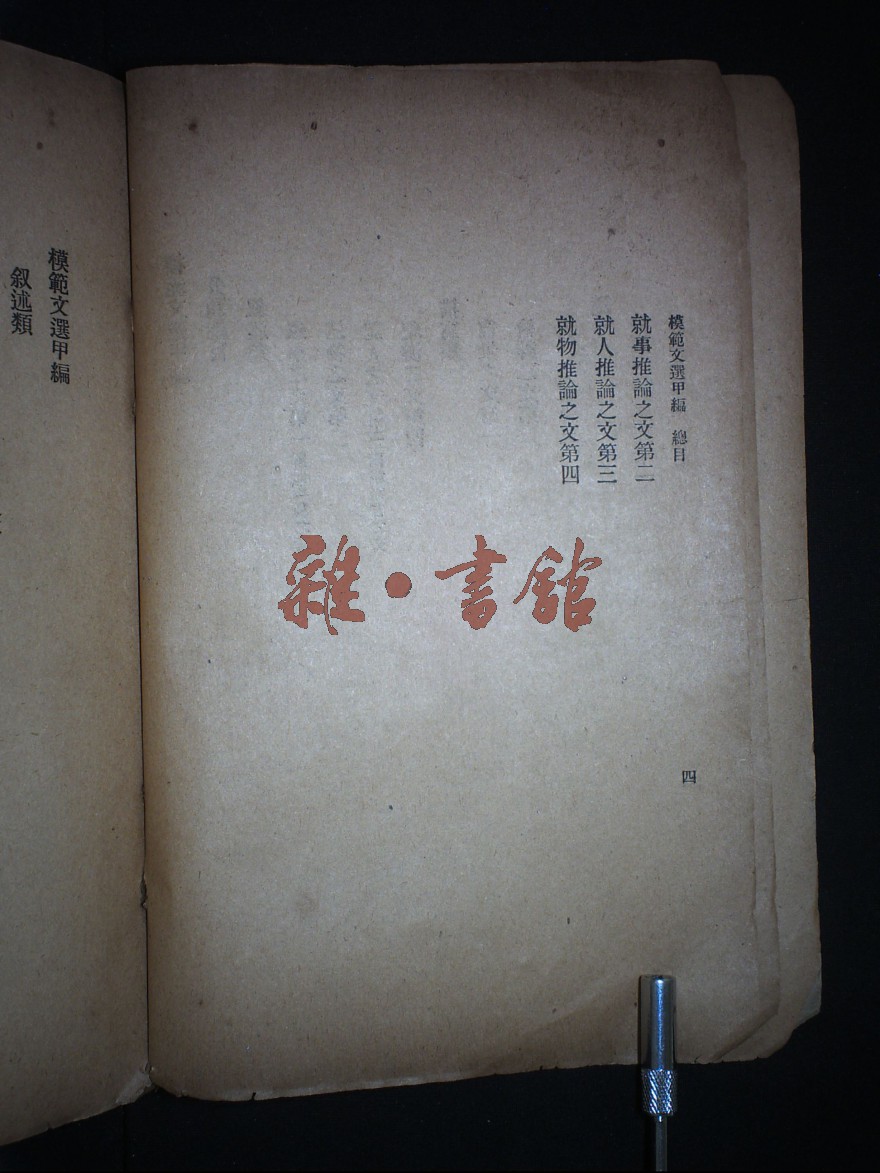 模範文選甲編　總目
就事推論之文第二
就人推論之文第三
就物推論之文第四
四
雜・書館
模範文選甲編
叙述類